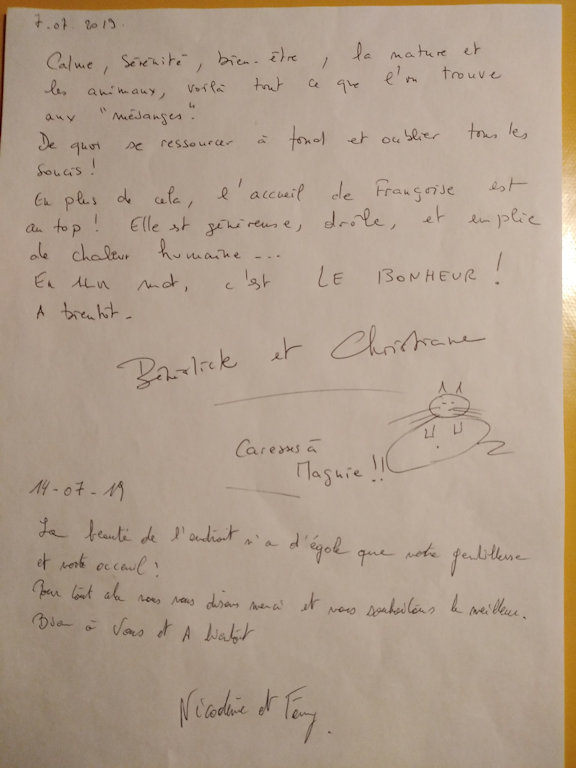 7.07.2019.
Calme, Sérénité, bien-être, la nature et
les animaux, voilà tout ce que l'on trouve
aux "mésanges".
De quoi se ressourcer à fond et oublier tous les
soucis!
En plus de cela, l'accueil de Françoise est
au top! Elle est généreuse, drôle, et emplie
de chaleur humaine...
En un mot, c'est LE BONHEUR!
A bientôt.
et Christiane
Caresses à
Magnie!!
14-07-19
La beauté de l'endroit n'a d'égale que votre gentillesse
et votre acceuil!
Pour tout cela nous vous disons merci et vous souhaitons le meilleur.
à Vous et A bientôt
et